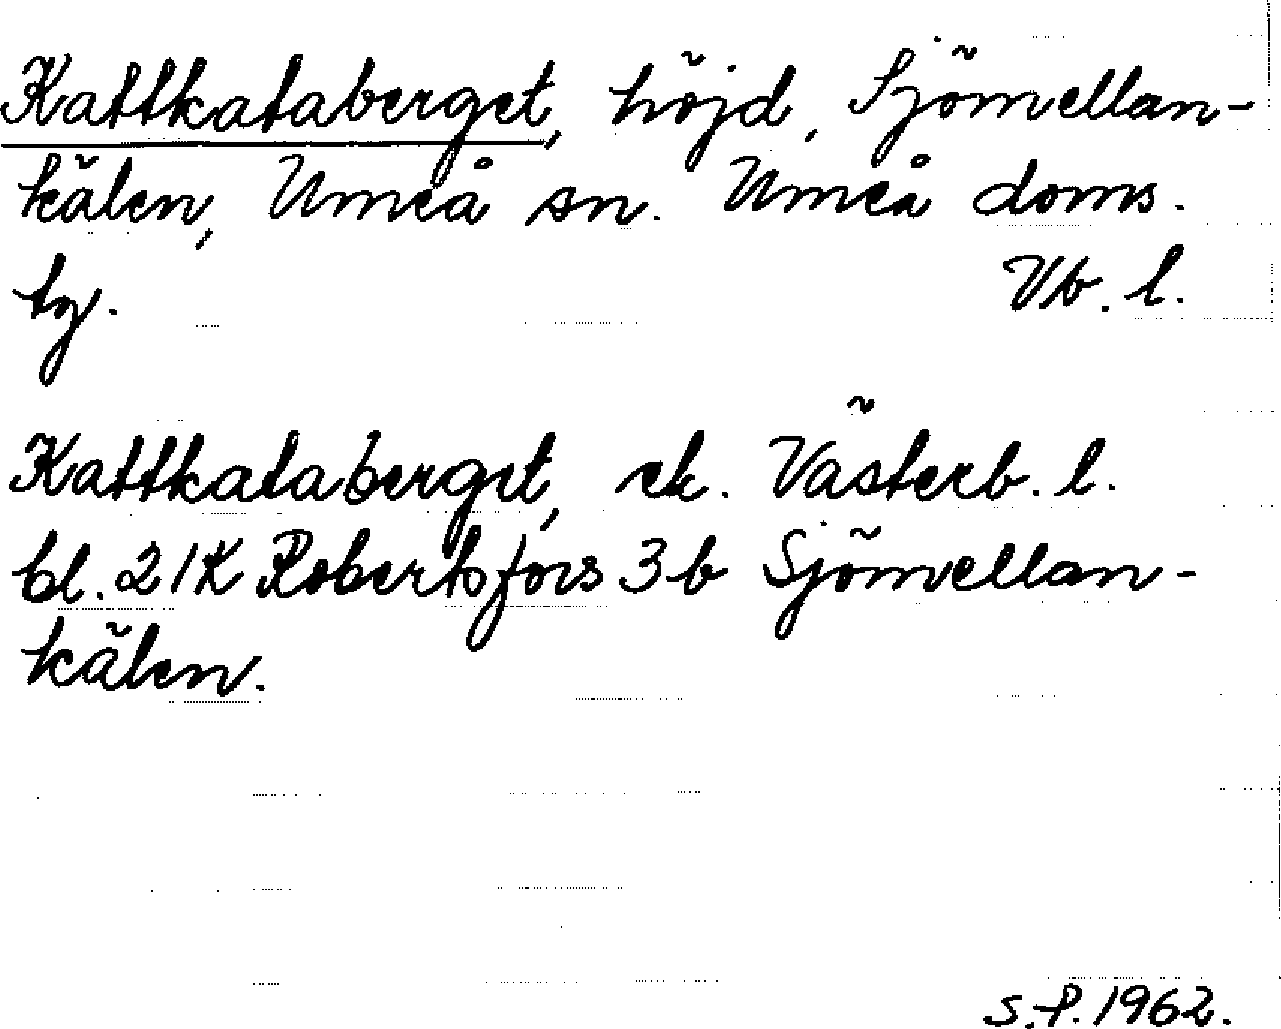 Kattkataberget, höjd, Sjömellan-
kälen, Umeå sn. Umeå doms.
tg. Vb. l.
Kattkataberget, ek. Västerb. l.
bl. 21K Robertsfors 3b Sjömellan-
kälen.
S.P. 1962.